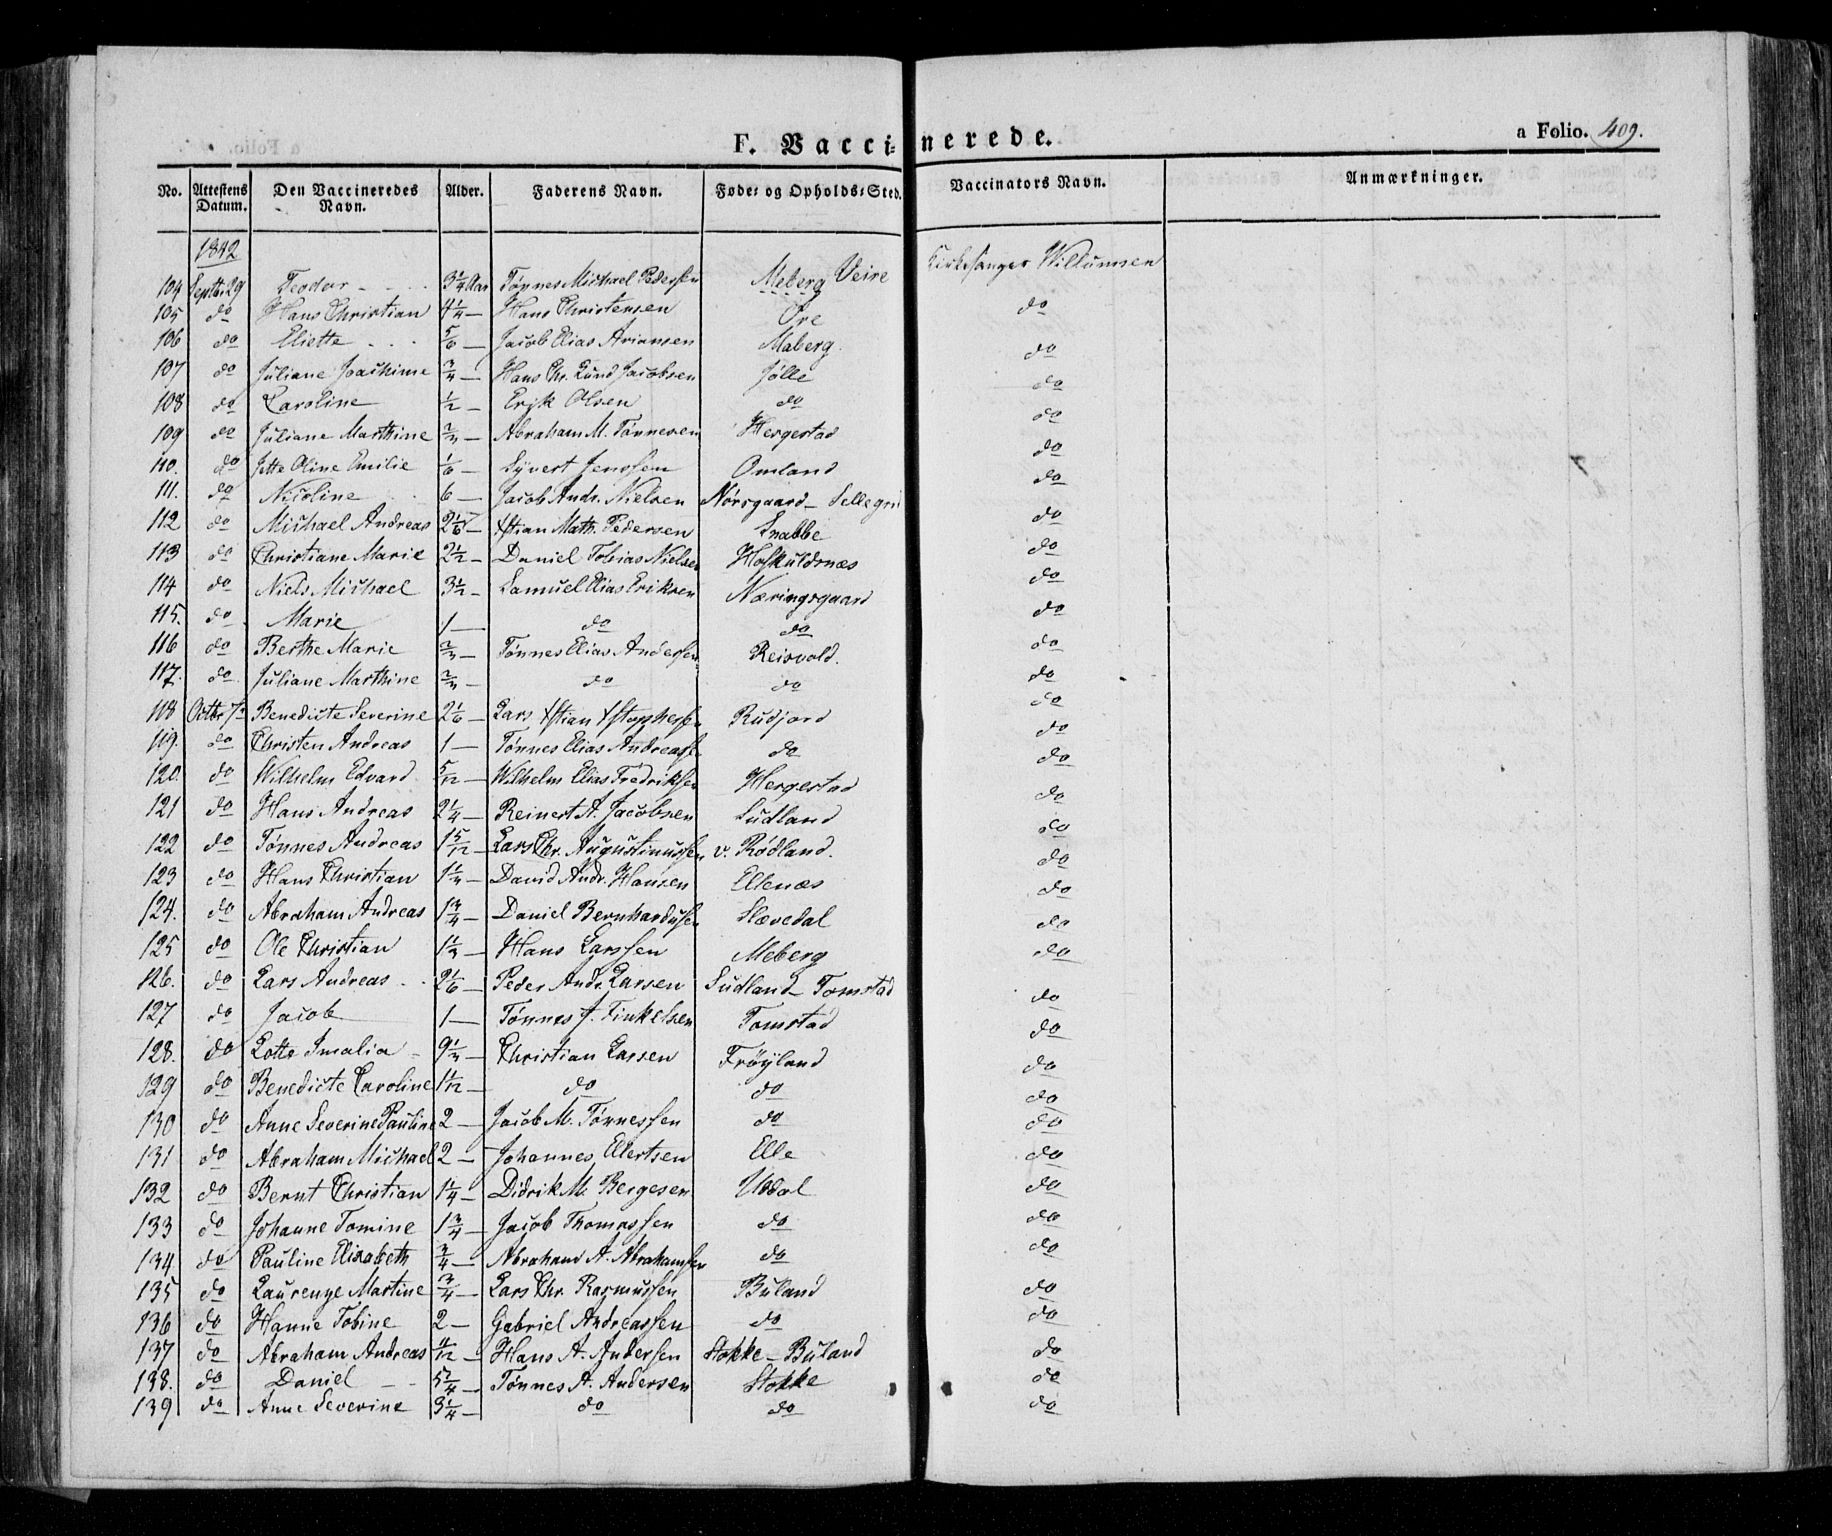 F. Vaccinerede.
a Folio. 409.
No. Attestens Datum. Den Vaccineredes Navn. Alder. Faderens Navn. Føde- og Opholds-Sted. Vaccinators Navn. Anmærkninger.
1842
104 Septbr. 29 Teodor 3 1/4 Aar Tønnes Michael Pedersen Meberg Veire Kirkesanger Willumsen
105 do Hans Christian 4 1/4 — Hans Christensen Øre do
106 do Eliette 5/6 — Jacob Elias Ariansen Maberg do
107 do Juliane Joachime 3/4 — Hans Chr. Lund Jacobsen Jølle do
108 do Caroline 1/2 — Erik Olsen do do
109 do Juliane Marthine 2/3 — Abraham M. Tønnesen Hergestad do
110. do Jette Oline Emilie 1/6 — Syvert Jenssen Omland do
111. do Nicoline 6 — Jacob Andr. Nielsen Nørsgaard – do
112 do Michael Andreas 2 1/6 — Xstian Math. Pedersen Snabbe do
113 do Christiane Marie 2 1/2 — Daniel Tobias Nielsen Hoskuldsnæs do
114 do Niels Michael 3 1/2 — Samuel Elias Eriksen Næringsgaard do
115. do Marie 1 — do do do
116 do Berthe Marie 2/3 — Tønnes Elias Andersen Reisvold. do
117. do Juliane Marthine 2/3 — do do do
118 Octbr 7 Benedicte Severine 2 1/6 — Lars Xstian Xstophersen Rudjord do
119. do Christen Andreas 1 — Tønnes Elias Andreass. do do
120. do Wilhelm Edvard 5/12 — Wilhelm Elias Fredriksen Hergestad do
121 do Hans Andreas 2 1/4 — Reinert A. Jacobsen Sudland do
122 do Tønnes Andreas 1 5/12 — Lars Chr. Augustinussen v. Rødland. do
123 do Hans Christian 1 1/3 — David Andr. Hansen Ellenæs do
124. do Abraham Andreas 1 3/4 — Daniel Bernhardusen Slævedal do
125 do Ole Christian 1 1/3 — Hans Larssen Meberg do
126. do Lars Andreas 2 1/6 — Peder Andr. Larsen Sudland – Tomstad
127 do Jacob 1 — Tønnes J. Finkelsen Tomstad do
128. do Lotte Imalia 9 1/3 — Christian Larsen Frøyland do
129 do Benedicte Caroline 1 1/12 — do do do
130 do Anne Severine Pauline 2 — Jacob M. Tønnessen do do
131 do Abraham Michael 2 — Johannes Elertsen Elle do
132 do Bernt Christian 1 1/4 — Didrik M. Bergesen Udal do
133 do Johanne Tomine 1 3/4 — Jacob Thomassen do do
134. do Pauline Elisabeth 3/4 — Abraham A. Abrahamsen do do
135 do Laurenze Martine 3/4 — Lars Chr. Rasmussen Buland do
136 do Hanne Tobine 2 — Gabriel Andreassen do do
137 do Abraham Andreas 11/12 — Hans A. Andersen Stokke – Buland do
138. do Daniel — Tønnes A. Andersen Stokke do
139 do Anne Severine 3 1/4 — do do do